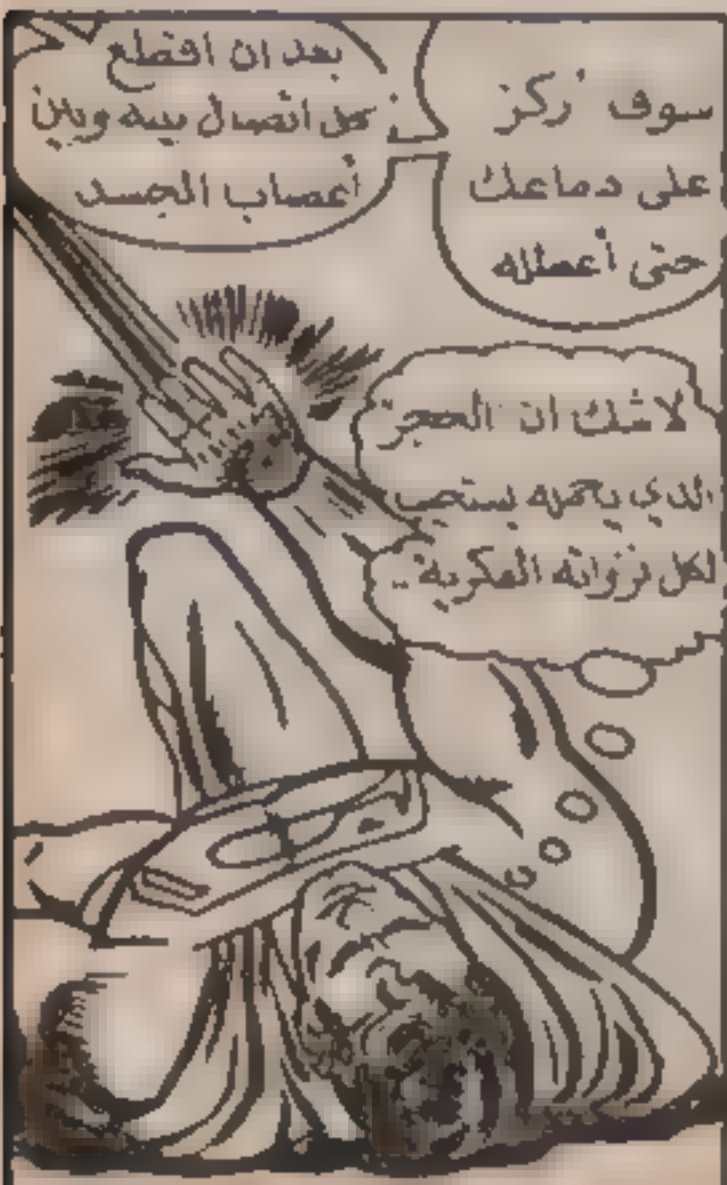 سوف أركز
على دماغك
حتى أعطله
بعد ان اقطع
كل اتصال بينه وبين
أعصاب الجسد
لاشك ان الحجر
الذي يحمله يستجيب
لكل نزواته الفكرية ..